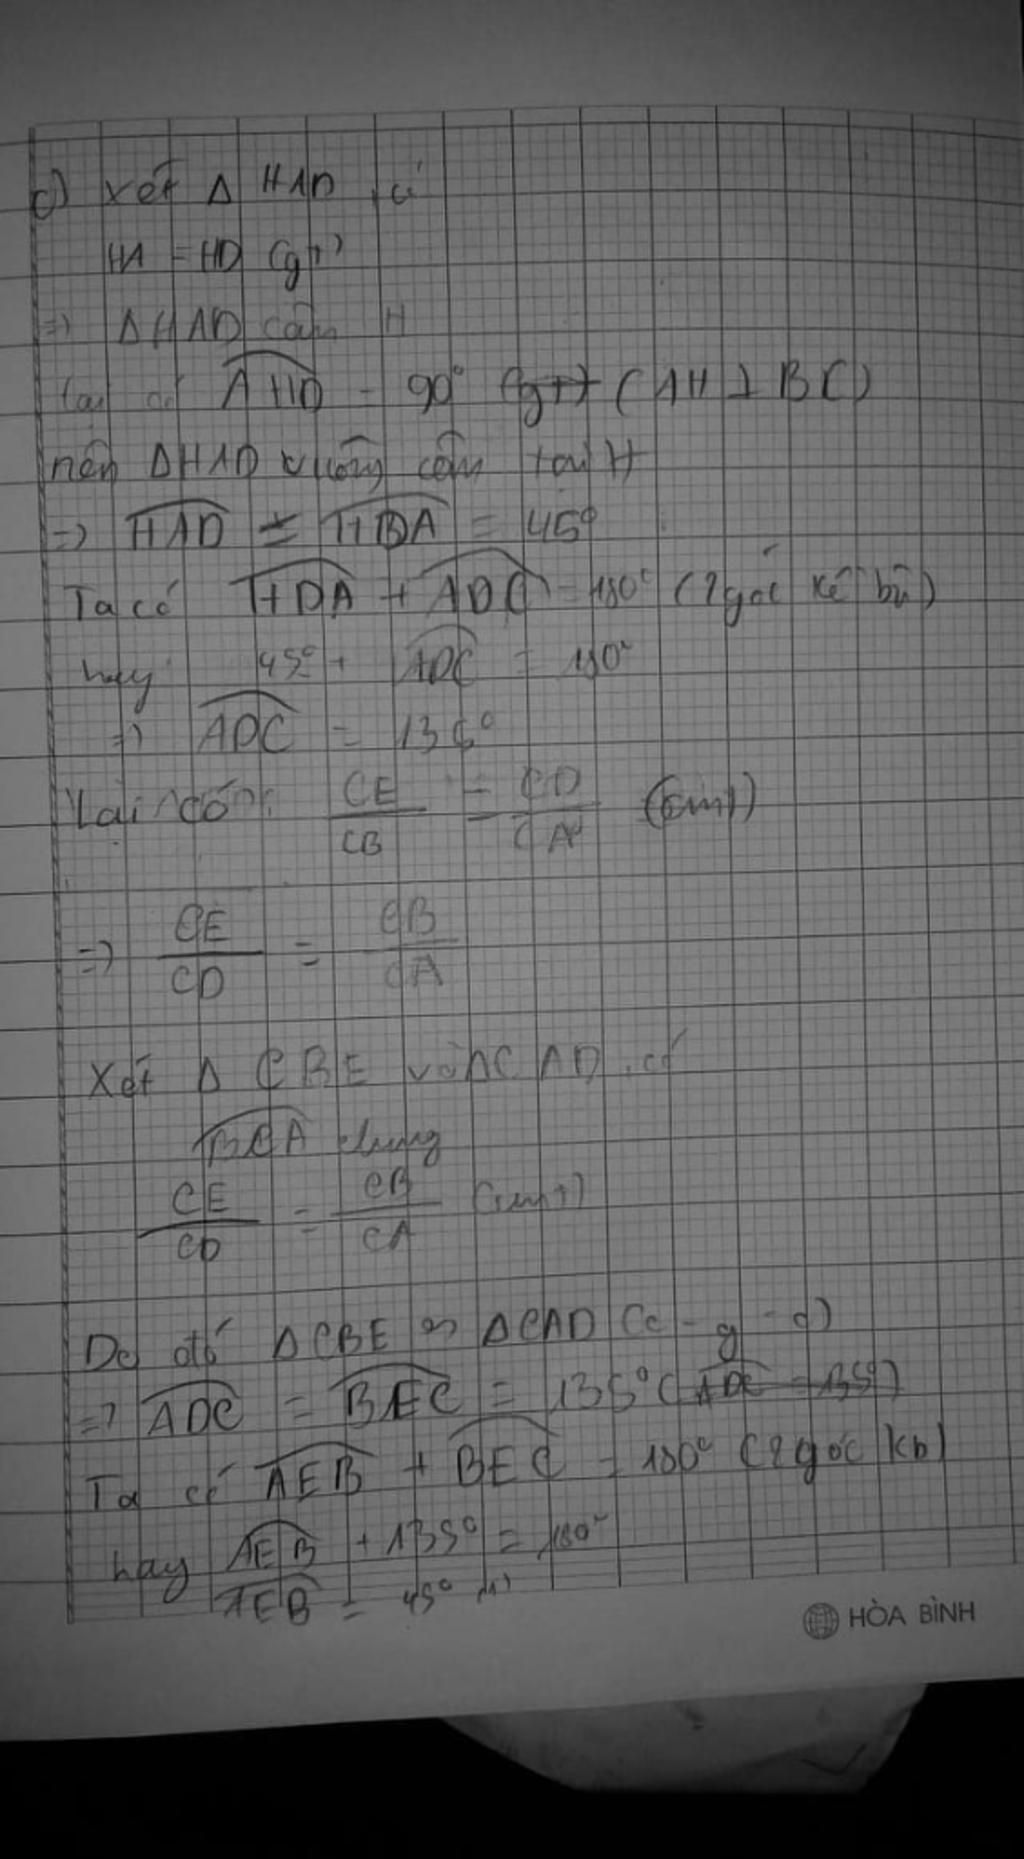 c) Xét Δ HAD có
HA = HD (gt)
=> Δ HAD cân H
lại có AHD = 90° (gt) (AH ⊥ BC)
nên ΔHAD vuông cân tại H
=> HAD = HDA = 45°
Ta có HDA + ADC = 180° (2 góc kề bù)
hay 45° + ADC = 180°
=> ADC = 135°
Lại có: CE/CB = CD/CA (cmt)
=> CE/CD = CB/CA
Xét Δ CBE và ΔCAD có
BCA chung
CE/CD = CB/CA (cmt)
Do đó ΔCBE ∽ ΔCAD (c - g - c)
=> ADC = BEC = 135° (ADC = 135°)
Ta có AEB + BEC = 180° (2 góc kb)
hay AEB + 135° = 180°
AEB = 45° (1)
HÒA BÌNH